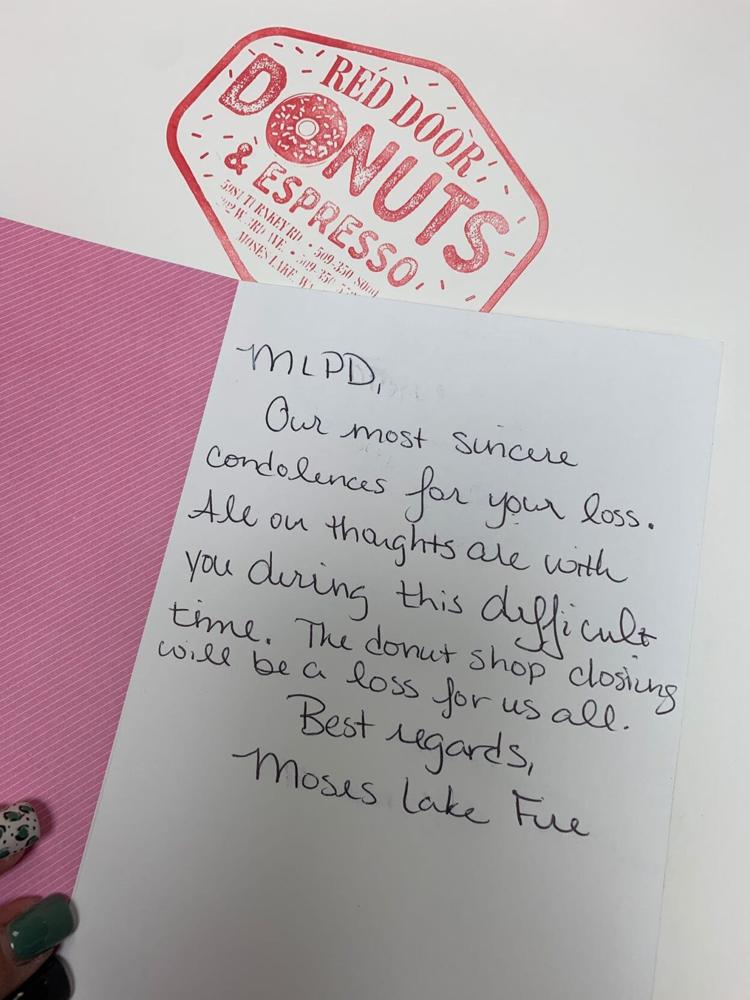 RED DOOR
DONUTS
& ESPRESSO
5981 TURNKEY RD • 509-350-
W. 3RD AVE. • 509-350-
MOSES LAKE, WA
MLPD,
Our most sincere
condolences for your loss.
All our thoughts are with
you during this difficult
time. The donut shop closing
will be a loss for us all.
Best regards,
Moses Lake Fire